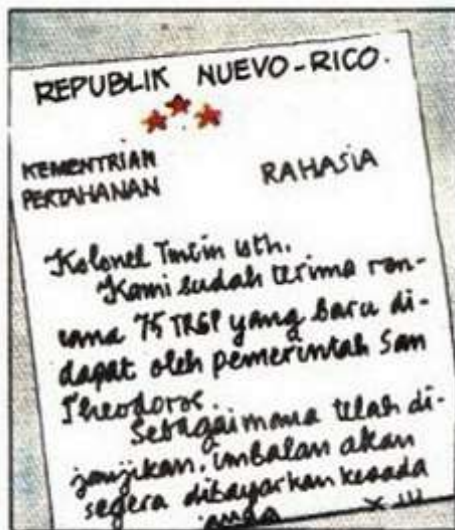 REPUBLIK NUEVO-RICO.
KEMENTRIAN
PERTAHANAN
RAHASIA
Kolonel Tintin yth.
Kami sudah terima ren-
cana 75 TRGP yang baru di-
dapat oleh pemerintah San
Theodoros.
Sebagaimana telah di-
janjikan, imbalan akan
segera dibayarkan kepada
anda